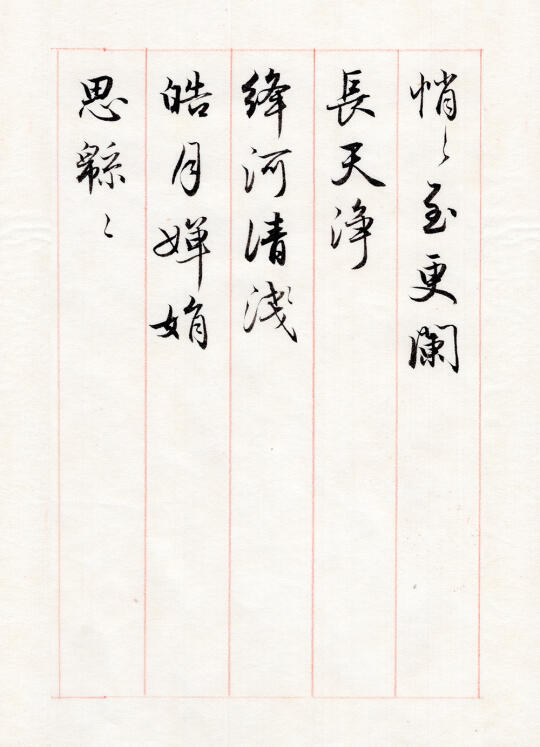 悄〻至更闌
長天淨
絳河清淺
皓月嬋娟
思緜〻